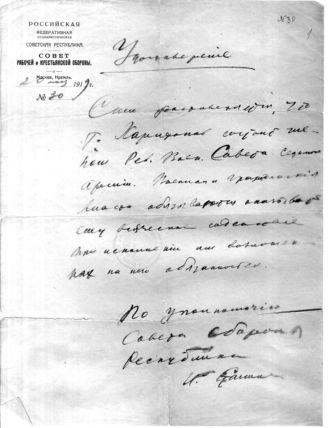 №30
1
РОССІЙСКАЯ
ФЕДЕРАТИВНАЯ
СОЦІАЛИСТИЧЕСКАЯ
СОВЕТСКАЯ РЕСПУБЛИКА.
СОВЕТ
РАБОЧЕЙ и КРЕСТЬЯНСКОЙ ОБОРОНЫ.
Москва, Кремль.
1919 г.
№ 30
Удостоверение
Сим удостоверяется, что
т. Харитонов состоит чле-
ном Рев. Воен. Совета Седьмой
Армии. Военныя и гражданския
власти обязываются оказывать
ему всяческое содействие
при исполнении им возложен-
ных на него обязанностей.
По уполномочию
Совета Обороны
Республики
И. Сталин